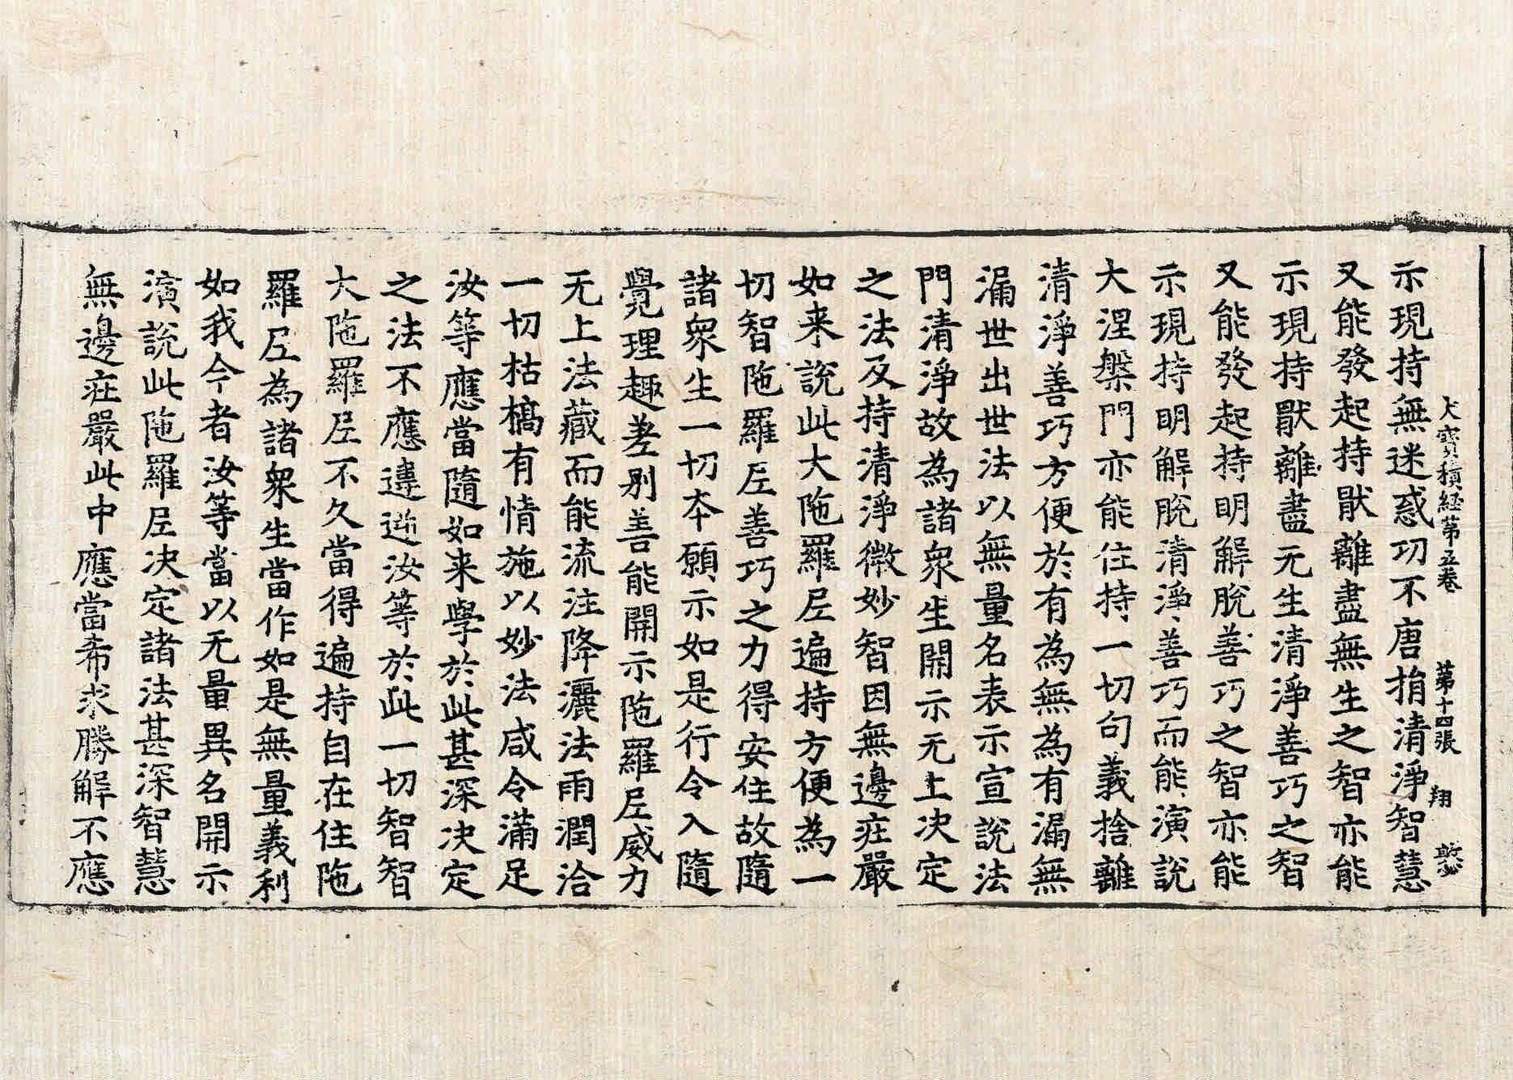 大寶積經第五卷　第十四張　翔
示現持無迷惑功不唐捐清淨智慧
又能發起持猒離盡無生之智亦能
示現持猒離盡无生清淨善巧之智
又能發起持明解脫善巧之智亦能
示現持明解脫清淨善巧而能演說
大涅槃門亦能住持一切句義捨離
清淨善巧方便於有為無為有漏無
漏世出世法以無量名表示宣說法
門清淨故為諸衆生開示无上決定
之法及持清淨微妙智因無邊疘嚴
如来說此大陁羅𡰱遍持方便為一
切智陁羅𡰱善巧之力得安住故隨
諸衆生一切夲願示如是行令入隨
覺理趣差別善能開示陁羅𡰱威力
无上法藏而能流注降灑法雨潤洽
一切枯槁有情施以妙法咸令滿足
汝等應當隨如来學於此甚深決定
之法不應違逆汝等於此一切智智
大陁羅𡰱不久當得遍持自在住陁
羅𡰱為諸衆生當作如是無量義利
如我今者汝等當以无量異名開示
演說此陁羅𡰱決定諸法甚深智慧
無邊疘嚴此中應當希求勝解不應